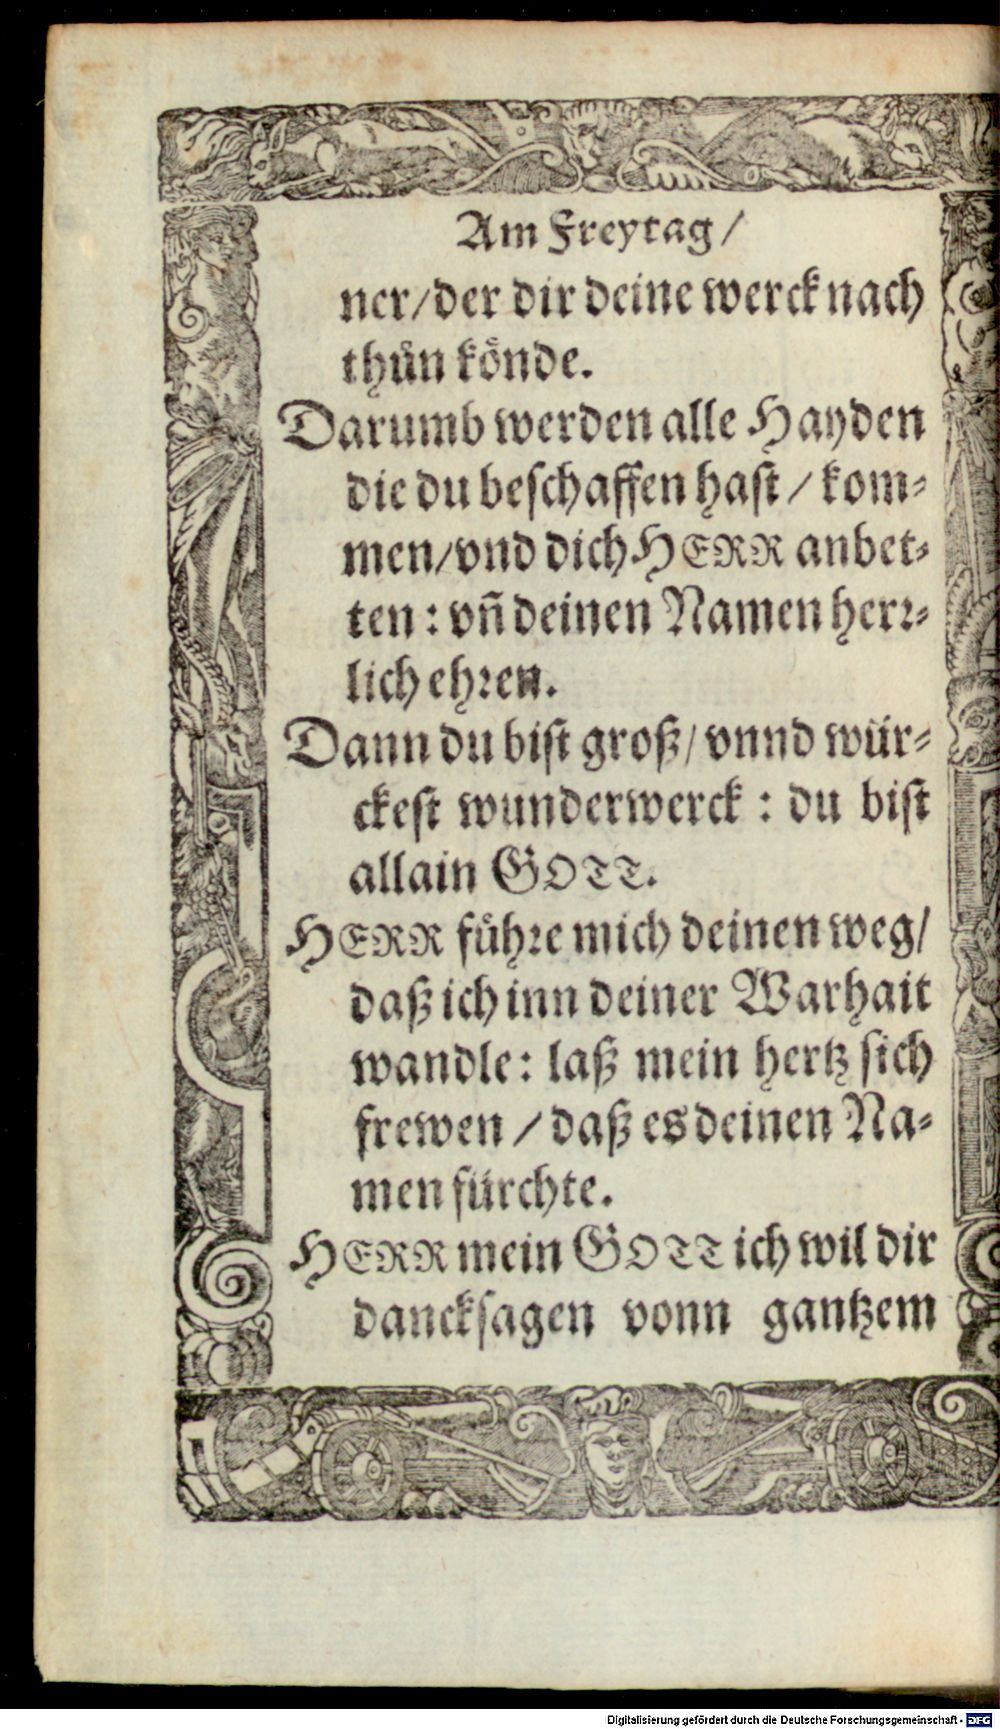 Am Freytag/
ner/der dir deine werck nach
thůn koͤnde.
Darumb werden alle Hayden
die du beschaffen hast / kom⸗
men/vnd dich HERR anbet⸗
ten : vñ deinen Namen herr⸗
lich ehren.
Dann du bist groß/ vnnd wür⸗
ckest wunderwerck : du bist
allain GOTT.
HERR fuͤhre mich deinen weg/
daß ich inn deiner Warhait
wandle: laß mein hertz sich
frewen / daß es deinen Na⸗
men fürchte.
HERR mein GOTT ich wil dir
dancksagen vonn gantzem
Digitalisierung gefördert durch die Deutsche Forschungsgemeinschaft - DFG